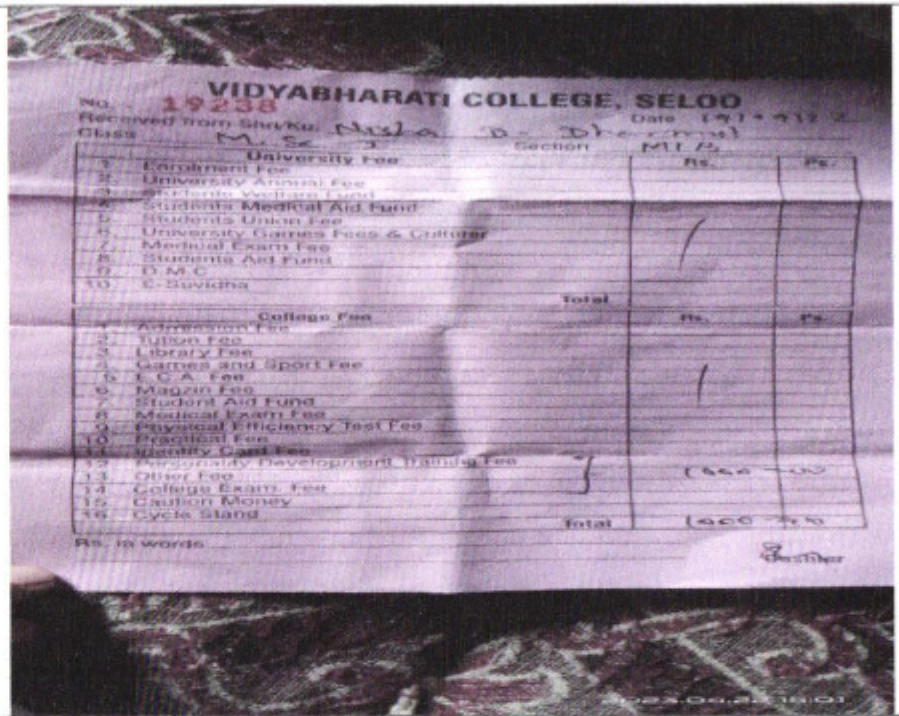 VIDYABHARATI COLLEGE, SELOO
No. 19238
Received from Shri/Ku. Nisha D. Date
Class M.Sc I Section
University Fee Rs. Ps.
1. Enrolment Fee
2. University Annual Fee
3. Students Welfare Fund
4. Students Medical Aid Fund
5. Students Union Fee
6. University Games Fees & Culturer
7. Medical Exam Fee
8. Students Aid Fund
9. D.M.C
10. E-Suvidha
Total
College Fee Rs. Ps.
1. Admission Fee
2. Tution Fee
3. Library Fee
4. Games and Sport Fee
5. E.C.A. Fee
6. Magzin Fee
7. Student Aid Fund
8. Medical Exam Fee
9. Physical Efficiency Test Fee
10. Practical Fee
11. Identity Card Fee
12. Personality Development Training Fee
13. Other Fee 1000 - 00
14. College Exam. Fee
15. Caution Money
16. Cycle Stand
Total 1000 - 00
Rs. in words
Cashier
2023.04.22 18:01